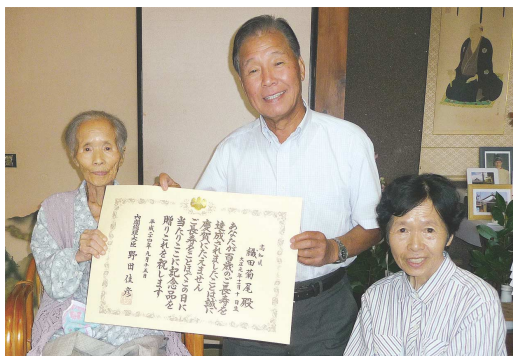 高知県
織田菊尾 殿
あなたが百歳のご長寿を
達成されましたことは誠に
慶賀にたえません
ご長寿をことほぐこの日に
当たりここに記念品を
贈りこれを祝します
平成二十四年九月十五日
内閣総理大臣 野田佳彦